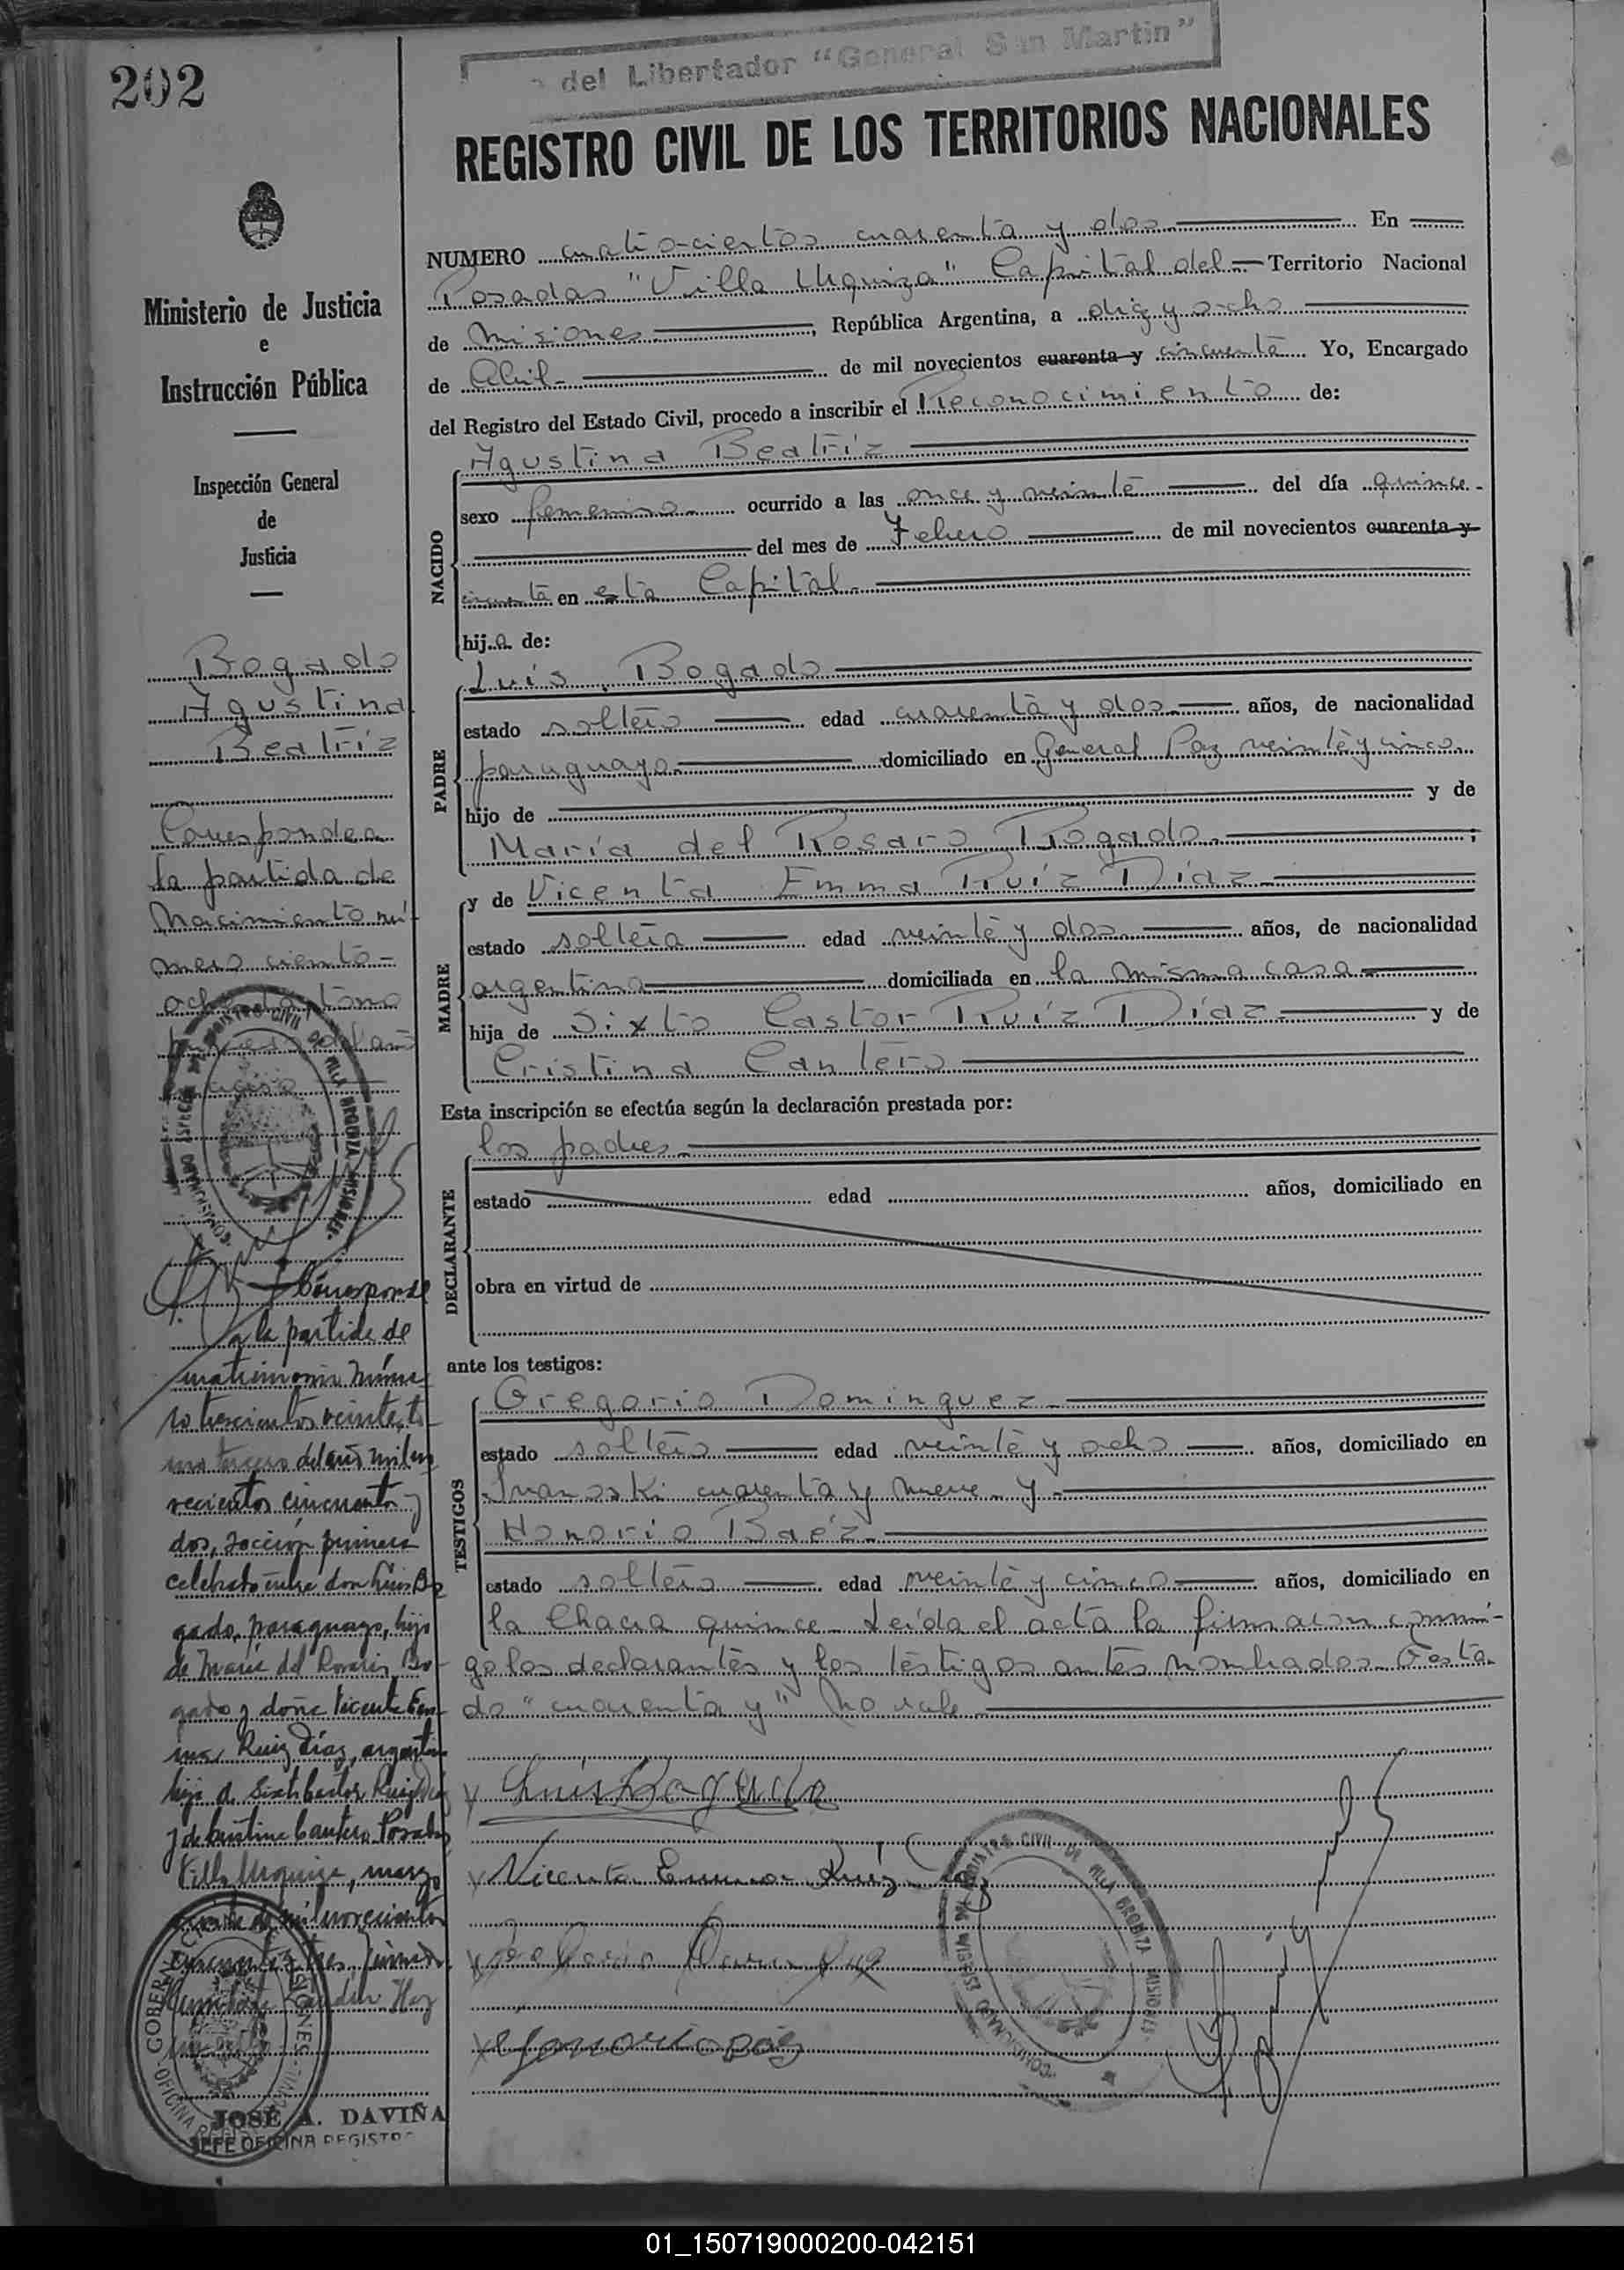 202
del Libertador "General San Martin"
REGISTRO CIVIL DE LOS TERRITORIOS NACIONALES
Ministerio de Justicia
e
Instrucción Pública
Inspección General
de
Justicia
Bogado
Agustina
Beatriz
Corresponde a
la partida de
nacimiento nú-
mero ciento-
ochenta tomo
primero del año
Corresponde
a la partida de
matrimonio núme
ro trescientos veinte, to
mo tercero del año mil no
vecientos cincuenta y
dos, sección primera
celebrado entre don Luis Bo
gado, paraguayo, hijo
de María del Rosario Bo-
gado y doña Vicenta Em-
ma Ruiz Díaz, argentina
hija de Sixto Castor Ruiz Díaz
y de Cristina Cantero. Posadas
Villa Urquiza, marzo
de mil novecientos
cincuenta y tres
JOSÉ A. DAVIÑA
JEFE OFICINA REGISTRO
NUMERO cuatrocientos cuarenta y dos En
Posadas "Villa Urquiza" Capital del Territorio Nacional
de Misiones, República Argentina, a diez y ocho
de Abril de mil novecientos cuarenta y cincuenta Yo, Encargado
del Registro del Estado Civil, procedo a inscribir el Reconocimiento de:
NACIDO
Agustina Beatriz
sexo femenino ocurrido a las once y veinte del día quince
del mes de Febrero de mil novecientos cuarenta y
cincuenta en esta Capital
hija de:
PADRE
Luis Bogado
estado soltero edad cuarenta y dos años, de nacionalidad
paraguayo domiciliado en General Paz veinte y cinco
hijo de y de
María del Rosaro Bogado ;
MADRE
y de Vicenta Emma Ruíz Díaz
estado soltera edad veinte y dos años, de nacionalidad
argentina domiciliada en la misma casa
hija de Sixto Castor Ruíz Díaz y de
Cristina Cantero
Esta inscripción se efectúa según la declaración prestada por:
DECLARANTE
los padres
estado edad años, domiciliado en
obra en virtud de
ante los testigos:
TESTIGOS
Gregorio Dominguez
estado soltero edad veinte y ocho años, domiciliado en
Ivanoski cuarenta y nueve y
Honorio Baéz
estado soltero edad veinte y cinco años, domiciliado en
la Chacra quince. Leída el acta la firmaron conmi-
go los declarantes y los testigos antes nombrados. Testa-
do "cuarenta y" No vale
Luis Bogado
Vicenta Emma Ruíz Díaz
01_150719000200-042151